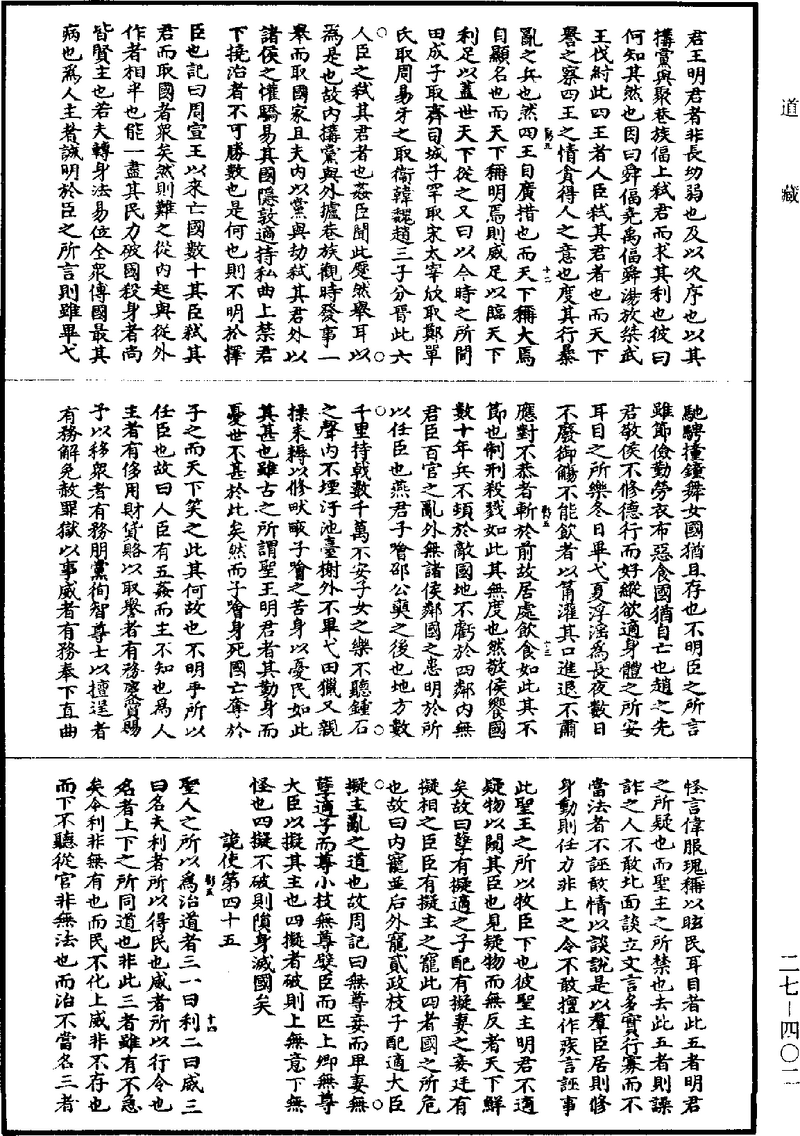 道藏
君王明君者非長幼弱也及以次序也以其
搆黨與聚巷族偪上弑君而求其利也彼曰
何知其然也因曰舜偪堯禹偪舜湯放桀武
王伐紂此四王者人臣弑其君者也而天下
譽之察四王之情貪得人之意也度其行暴
十二
亂之兵也然四王自廣措也而天下稱大焉
自顯名也而天下稱明焉則威足以臨天下
利足以蓋世天下從之又曰以今時之所聞
田成子取齊司城子罕取宋太宰欣取鄭單
氏取周易牙之取衞韓魏趙三子分晉此六
人臣之弑其君者也姦臣聞此蹷然舉耳以
為是也故内搆黨與外攄巷族觀時發事一
舉而取國家且夫内以黨與劫弑其君外以
諸侯之懽驕易其國隱敦適持私曲上禁君
下撓治者不可勝數也是何也則不明於擇
臣也記曰周宣王以來亡國數十其臣弑其
君而取國者衆矣然則難之從内起與從外
作者相半也能一盡其民力破國殺身者尚
皆賢主也若夫轉身法易位全衆傳國最其
病也為人主者誠明於臣之所言則雖畢弋
馳騁撞鐘舞女國猶且存也不明臣之所言
雖節儉勤勞衣布惡食國猶自亡也趙之先
君敬侯不修德行而好縱欲適身體之所安
耳目之所樂冬日畢弋夏浮滛為長夜數日
不廢御觴不能飲者以筩灌其口進退不肅
十三
應對不恭者斬於前故居處飲食如此其不
節也制刑殺戮如此其無度也然敬侯饗國
數十年兵不頓於敵國地不虧於四鄰内無
君臣百官之亂外無諸侯鄰國之患明於所
以任臣也燕君子噲邵公奭之後也地方數
千里持戟數千萬不安子女之樂不聽鍾石
之聲内不堙汙池臺榭外不畢弋田獵又親
操耒耨以修畎畞子噲之苦身以憂民如此
其甚也雖古之所謂聖王明君者其勤身而
憂世不甚於此矣然而子噲身死國亡奪於
子之而天下笑之此其何故也不明乎所以
任臣也故曰人臣有五姦而主不知也為人
主者有侈用財貨賂以取譽者有務慶賞賜
予以移衆者有務朋黨徇智尊士以擅逞者
有務解免赦罪獄以事威者有務奉下直曲
怪言偉服瑰稱以眩民耳目者此五者明君
之所疑也而聖主之所禁也去此五者則譟
詐之人不敢北面談立文言多實行寡而不
當法者不誣敢情以談說是以羣臣居則修
身動則任力非上之令不敢擅作疾言誣事
此聖王之所以牧臣下也彼聖主明君不適
疑物以闚其臣也見疑物而無反者天下鮮
矣故曰孽有擬適之子配有擬妻之妾廷有
擬相之臣臣有擬主之寵此四者國之所危
也故曰内寵並后外寵貳政枝子配適大臣
擬主亂之道也故周記曰無尊妾而卑妻無
孽適子而尊小枝無尊嬖臣而匹上卿無尊
大臣以擬其主也四擬者破則上無意下無
怪也四擬不破則隕身滅國矣
詭使第四十五
聖人之所以為治道者三一曰利二曰威三
十四
曰名夫利者所以得民也威者所以行令也
名者上下之所同道也非此三者雖有不急
矣今利非無有也而民不化上威非不存也
而下不聽從官非無法也而治不當名三者
二七—四〇二